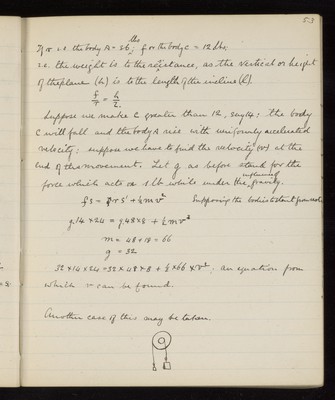 53
If r i.e. the body A = 36 lbs; f or the body C = 12 lbs;
i.e. the weight is to the resistance, as the vertical or height
of the plane (h) is to the length of the incline (l).
f/r = h/l.
Suppose we make C greater than 12, say 14; the body
C will fall and the body A rise with uniformly accelerated
velocity; suppose we have to find the velocity (v) at the
end of this movement. Let g as before stand for the
force which acts on 1 lb while under the influence of gravity.
fs = rs' + ½mv² Supposing the bodies to start from rest
g.14 × 24 = g.48 × 8 + ½mv²
m = 48 + 18 = 66
g = 32
32 × 14 × 24 = 32 × 48 × 8 + ½ × 66 × v²; an equation from
which v can be found.
Another case of this may be taken.